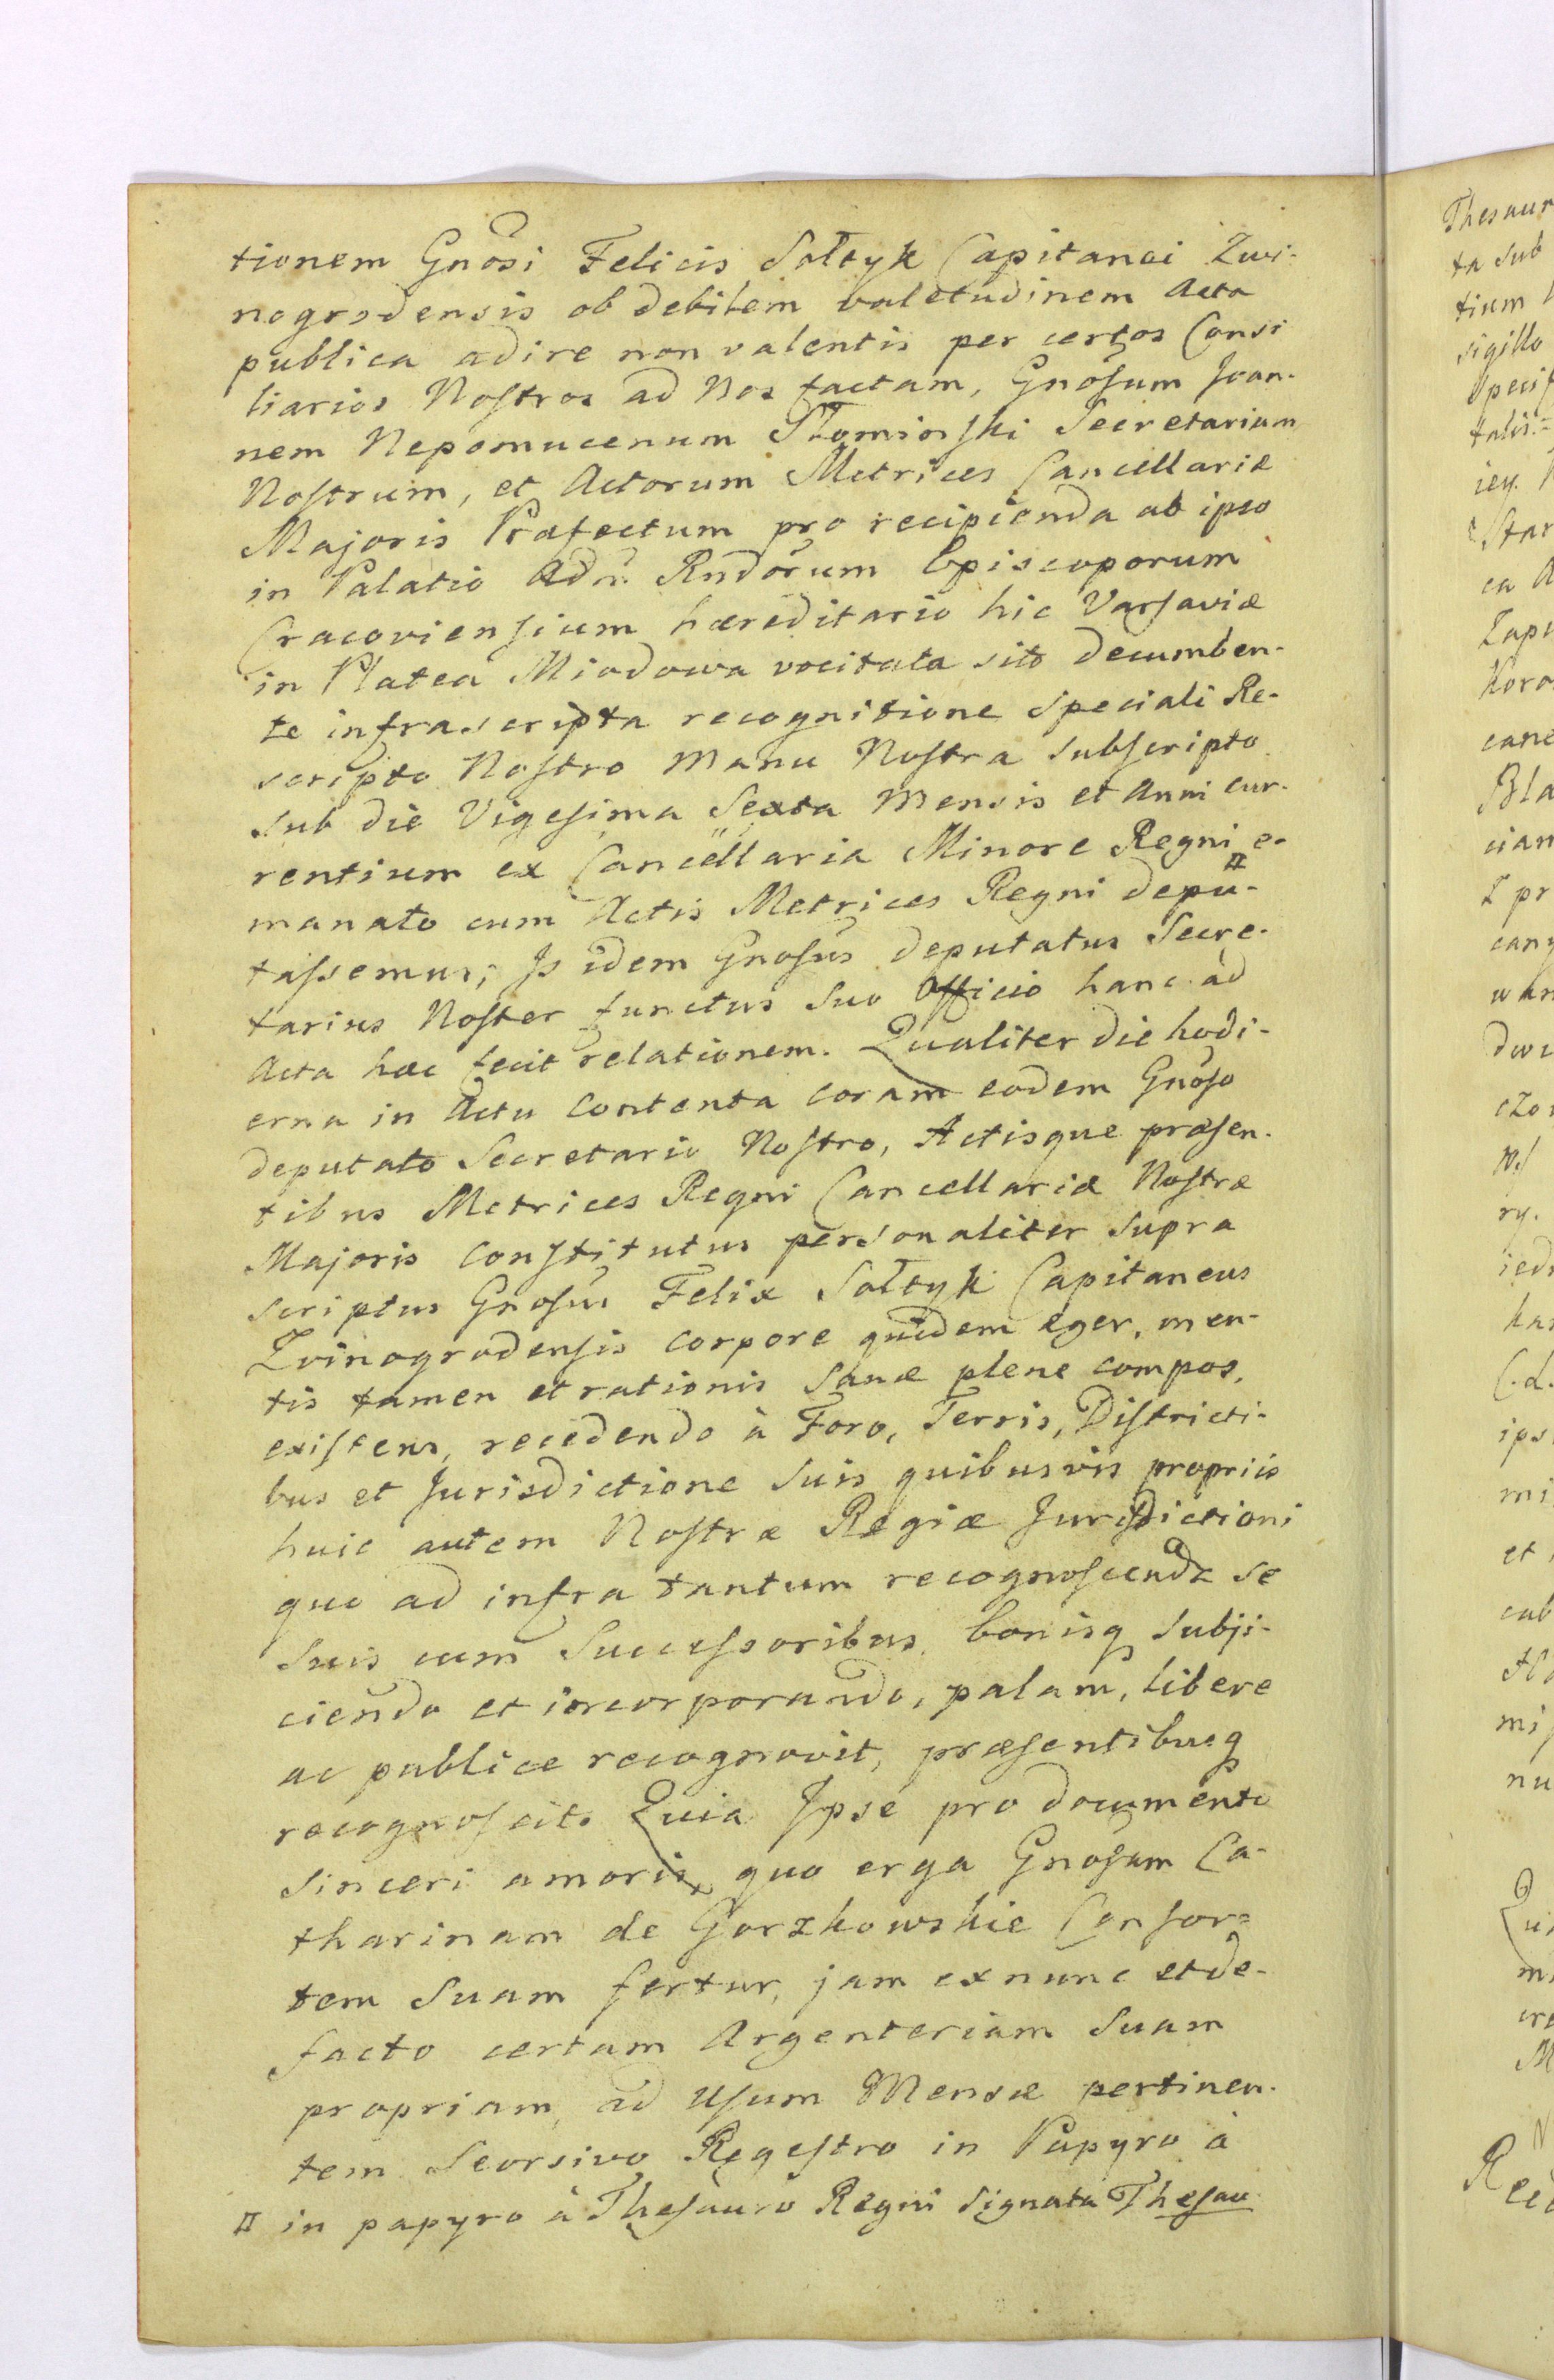 tionem Gnosi Felicis Sołtyk Capitanei Zwi-
nogrodensis ob debilem valetudinem Acta
publica adire non valentis per certos Consi
liarios Nostros ad Nos factam, Gnosum Joan-
nem Nepomucenum Słominski Secretarium
Nostrum, et Actorum Metrices Cancellariæ
Majoris Præfectum pro recipienda ab ipso
in Palatio Adm. Rndorum Episcoporum
Cracoviensium hæreditario hic Varsaviæ
in Platea Miodowa vocitata sito decumben-
te infrascripta recognitione speciali Re-
scripto Nostro Manu Nostra subscripto
sub die Vigesima Sexta Mensis et Anni cur-
rentium ex Cancellaria Minore Regni e-
manato cum Actis Metrices Regni depu-
tassemus; Is idem Gnosus deputatus Secre-
tarius Noster functus suo Officio hanc ad
Acta hæc fecit relationem. Qualiter die hodi-
erna in Actu contenta coram eodem Gnoso
deputato Secretario Nostro, Actisque præsen-
tibus Metrices Regni Cancellariæ Nostræ
Majoris constitutus personaliter supra
scriptus Gnosus Felix Sołtyk Capitaneus
Zvinogrodensis corpore quidem æger, men-
tis tamen et rationis sanæ plene compos
existens, recedendo à Foro, Terris, Districti-
bus et Jurisdictione suis quibusvis propriis
huic autem Nostræ Regiæ Jurisdictioni
quo ad infra tantum recognoscenda se
suis cum Successoribus, bonisq subji-
ciendo et incorporando, palam, libere
ac publice recognovit, præsentibusq
recognoscit. Quia Ipse pro documento
sinceri amoris, quo erga Gnosam Ca-
tharinam de Gorzkowskie Consor=
tem Suam fertur, jam ex nunc et de-
facto certam Argenteriam Suam
propriam, ad Usum Mensæ pertinen-
tem Seorsivo Regestro in Papyro à
¤ in papyro à Thesauro Regni signata Thesau